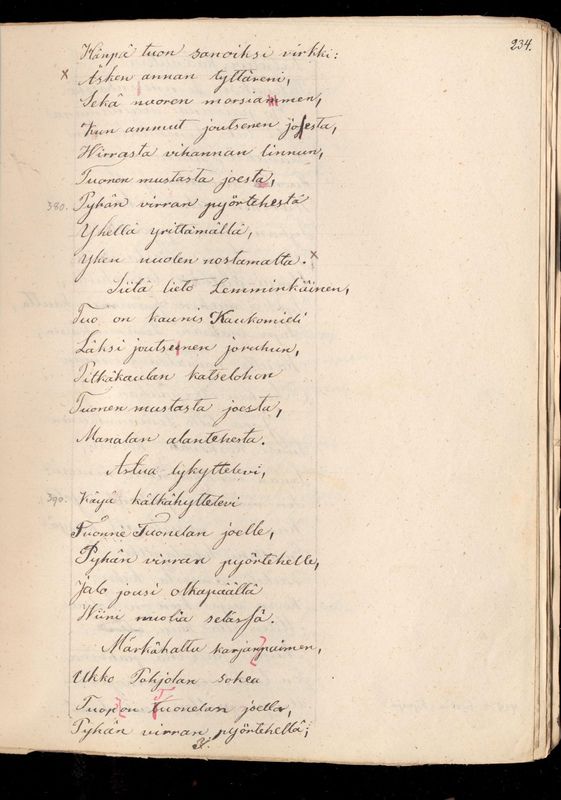 234.
Hänpä tuon sanoiksi virkki:
x Äsken annan tyttäreni,
Sekä nuoren morsiammen,
Kun ammut joutsenen joesta,
Wirrasta vihannan linnun,
Tuonen mustasta joesta,
380. Pyhän virran pyörtehestä
Yhellä yrittämällä,
Yhen nuolen nostamalta. x
Siitä lieto Lemminkäinen,
Tuo on kaunis Kaukomieli
Läksi joutsenen joruhun,
Pitkäkaulan katselohon
Tuonen mustasta joesta,
Manalan alantehesta.
Astua lykyttelevi,
390. Käyä kälkähyttelevi
Tuonne Tuonelan joelle,
Pyhän virran pyörtehelle,
Jalo jousi olkapäällä
Wiini nuolia selässä.
Märkähattu karjanpaimen,
Ukko Pohjolan sokea
Tuop on Tuonelan joella,
Pyhän virran pyörtehellä;